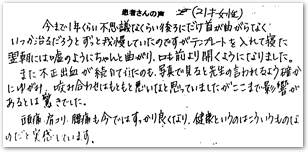 患者さんの声 (21才 女性)
今まで1年くらい不思議なくらい後ろにだけ首が曲がらなく
いつか治るだろうとずっと我慢していたのですがテンプレートを入れて寝た
翌朝には嘘のようにちゃんと曲がり、口も前より開くようになりました。
また不正出血が続いていたのも、写真で見ると先生の言われるよう確か
にゆがみ、咬み合わせはもともと悪いなと思っていましたがここまで影響が
あるとは驚きでした。
頭痛・肩こり、腰痛も今ではすっかり良くなり、健康というのはこういうものな
のだと実感しています。